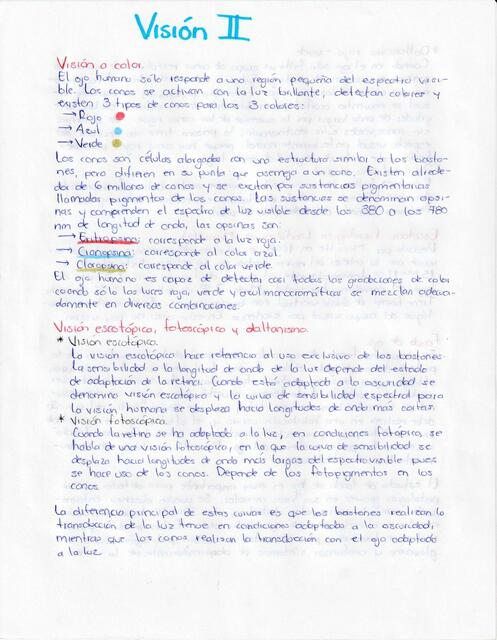 Visión II
Visión a color.
El ojo humano sólo responde a una región pequeña del espectro visi-
ble. Los conos se activan con la luz brillante, detectan colores y
existen 3 tipos de conos para los 3 colores:
→ Rojo
→ Azul
→ Verde
Los conos son células alargadas con una estructura similar a los basto-
nes, pero difieren en su punta que asemeja a un cono. Existen alrede-
dor de 6 millones de conos y se excitan por sustancias pigmentarias
llamadas pigmentos de los conos. Las sustancias se denominan opsi-
nas y comprenden el espectro de luz visible desde los 380 a los 780
nm de longitud de onda, las opsinas son:
→ Eritropsina: corresponde a la luz roja.
→ Cianopsina: corresponde al color azul.
→ Cloropsina: corresponde al color verde.
El ojo humano es capaz de detectar casi todas las gradaciones de color
cuando sólo las luces roja, verde y azul monocromática se mezclan adecua-
damente en diversas combinaciones.
Visión escotópica, fotoscópica y daltonismo.
* Visión escotópica.
La visión escotópica hace referencia al uso exclusivo de los bastones.
La sensibilidad a la longitud de onda de la luz depende del estado
de adaptación de la retina. Cuando está adaptada a la oscuridad se
denomina visión escotópica y la curva de sensibilidad espectral para
la visión humana se desplaza hacia longitudes de onda más cortas.
* Visión fotoscópica.
Cuando la retina se ha adaptado a la luz, en condiciones fotópica, se
habla de una visión fotoscópica, en la que la curva de sensibilidad se
desplaza hacia longitudes de onda más largas del espectro visible pues
se hace uso de los conos. Depende de los fotopigmentos en los
conos.
La diferencia principal de estas curvas es que los bastones realizan la
transducción de la luz tenue en condiciones adaptado a la oscuridad,
mientras que los conos realizan la transducción con el ojo adaptado
a la luz.